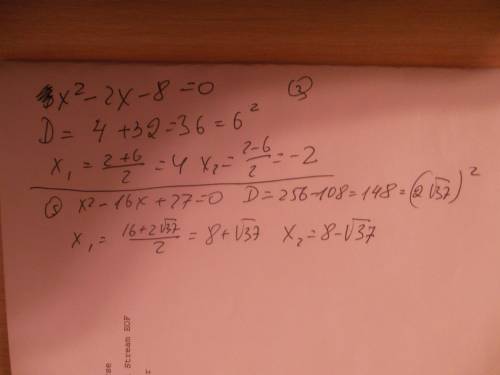 x² - 2x - 8 = 0 (3)
D = 4 + 32 = 36 = 6²
x₁ = (2+6)/2 = 4 x₂ = (2-6)/2 = -2
(5) x² - 16x + 27 = 0 D = 256 - 108 = 148 = (2√37)²
x₁ = (16+2√37)/2 = 8 + √37 x₂ = 8 - √37
Stream EOF